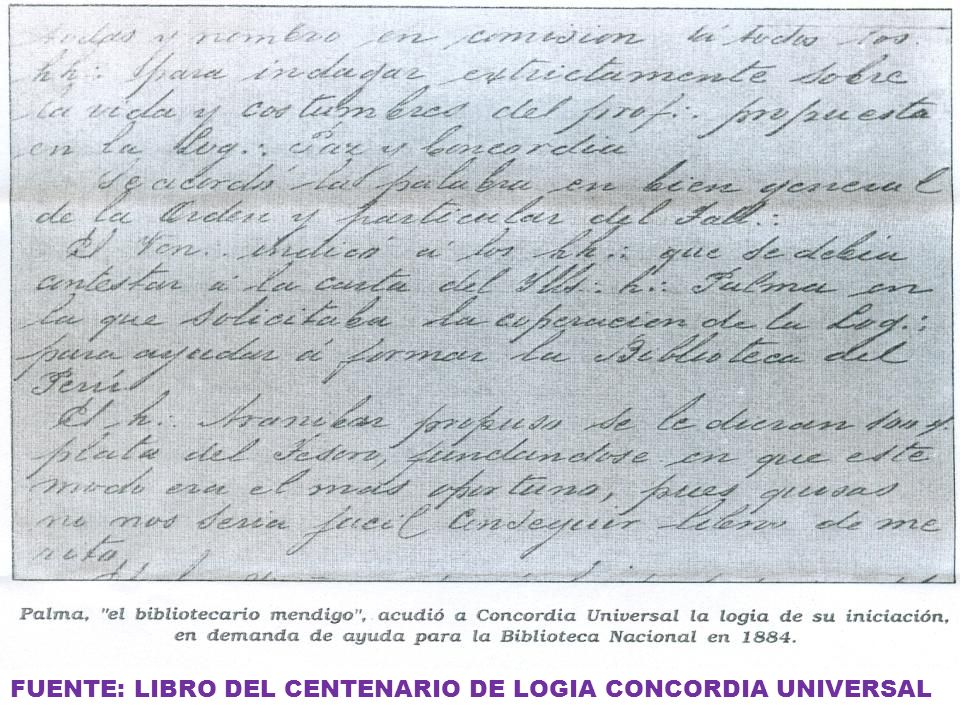 y nombro en comision á todos los
hh∴ para indagar extrictamente sobre
la vida y costumbres del prof∴ propuesto
en la Log∴ Paz y Concordia
Se acordó la palabra en bien general
de la Orden y particular del Tall∴
El Ven∴ indicó á los hh∴ que se debia
contestar á la carta del Ills∴ h∴ Palma en
la que solicitaba la coperacion de la Log∴
para ayudar á formar la Biblioteca del
Perú
El h∴ Aranibar propuso se le dieran 100 $
plata del Tesoro, fundandose en que este
modo era el mas oportuno, pues quisas
no nos seria facil conseguir libros de me
rito
Palma, "el bibliotecario mendigo", acudió a Concordia Universal la logia de su iniciación,
en demanda de ayuda para la Biblioteca Nacional en 1884.
FUENTE: LIBRO DEL CENTENARIO DE LOGIA CONCORDIA UNIVERSAL